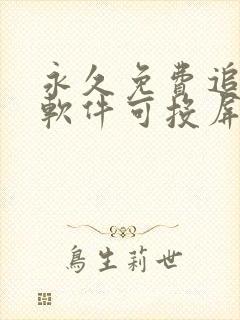 永久免費追
軟件可投屏
鳥生莉世